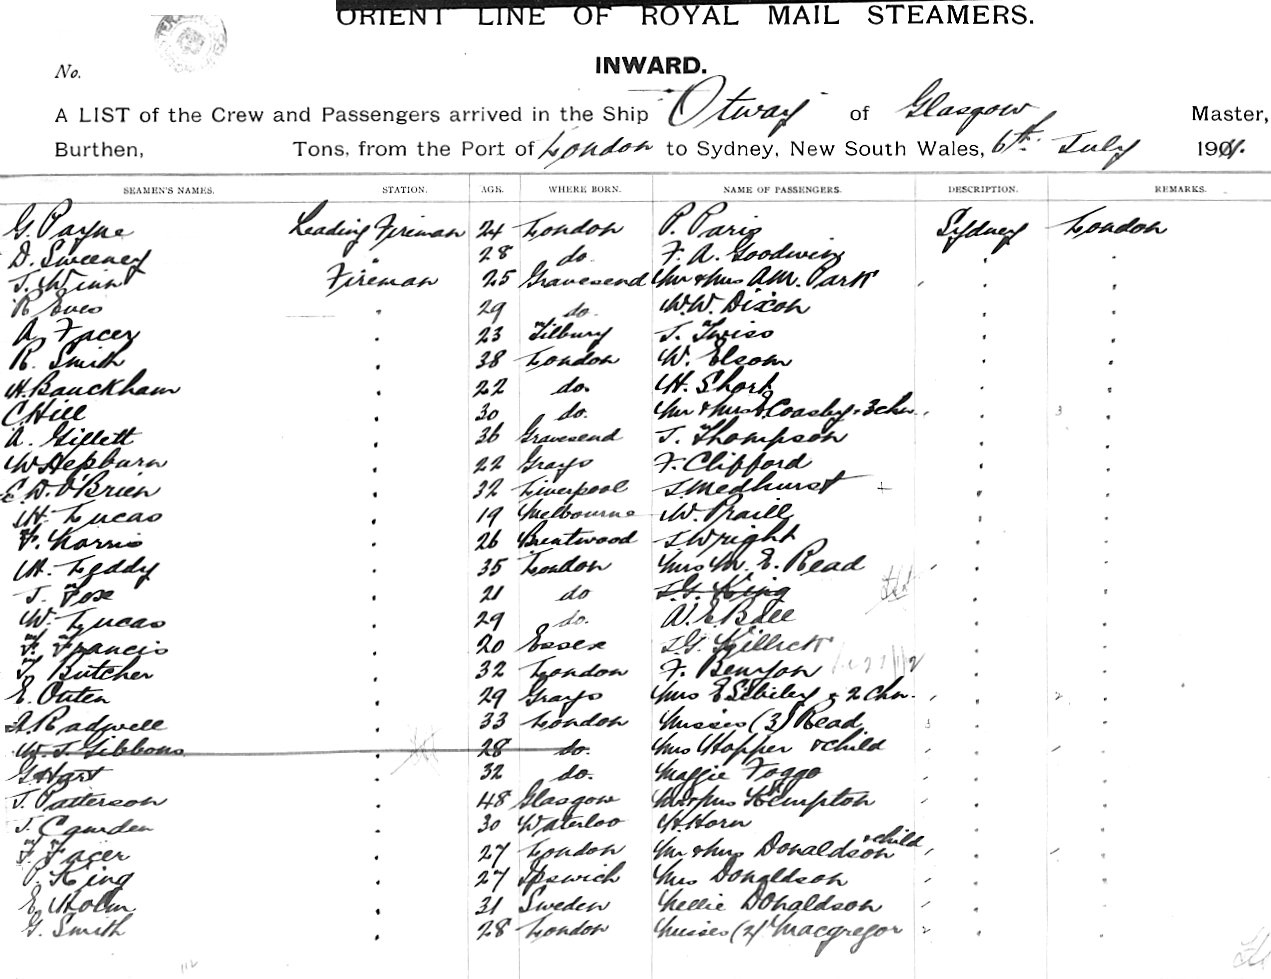 ORIENT LINE OF ROYAL MAIL STEAMERS.
INWARD.
No.
A LIST of the Crew and Passengers arrived in the Ship Otway of Glasgow Master,
Burthen, Tons, from the Port of London to Sydney, New South Wales, 6th July 1911.
SEAMEN'S NAMES. STATION. AGE. WHERE BORN. NAME OF PASSENGERS. DESCRIPTION. REMARKS.
G. Payne Leading Fireman 24 London P. Paris Sydney London
D. Sweeney " 28 do. F. A. Goodwing
J. Winn Fireman 25 Gravesend Mr & Mrs A.M. Park
R Eves 29 do. W.W. Dixon
A. Facer 23 Tilbury J. Twiss
R. Smith 38 London W. Elsom
H. Bauckham 22 do. H. Short
C Hill 30 do. Mr & Mrs E. Coasby & 3 chn
A. Gillett 36 Gravesend J. Thompson
W Hepburn 22 Grays F. Clifford
E. D. O'Brien 32 Liverpool J Medhurst +
H. Lucas 19 Melbourne W. Praill
F. Norris 26 Brentwood J Wright
H. Leddy 35 London Mrs M. E. Read
J. Fox 21 do J.G. King
W. Lucas 29 do. A. E. Ball
F. Francis 20 Essex J.G. Killick
T. Butcher 32 London F. Benyon
E. Outen 29 Grays Mrs E Sibiley & 2 chn.
A. Radwell 33 London Misses (3) Read
W. J. Gibbons 28 do. Mrs Hopper & child
G Hart 32 do. Maggie Foggo
J. Patterson 48 Glasgow Mr & Mrs Kempton
J. Camden 30 Waterloo H. Horn
F. Facer 27 London Mr & Mrs Donaldson & child
P. King 27 Ipswich Mrs Donaldson
E. Holm 31 Sweden Nellie Donaldson
G. Smith 28 London Misses (2) Macgregor